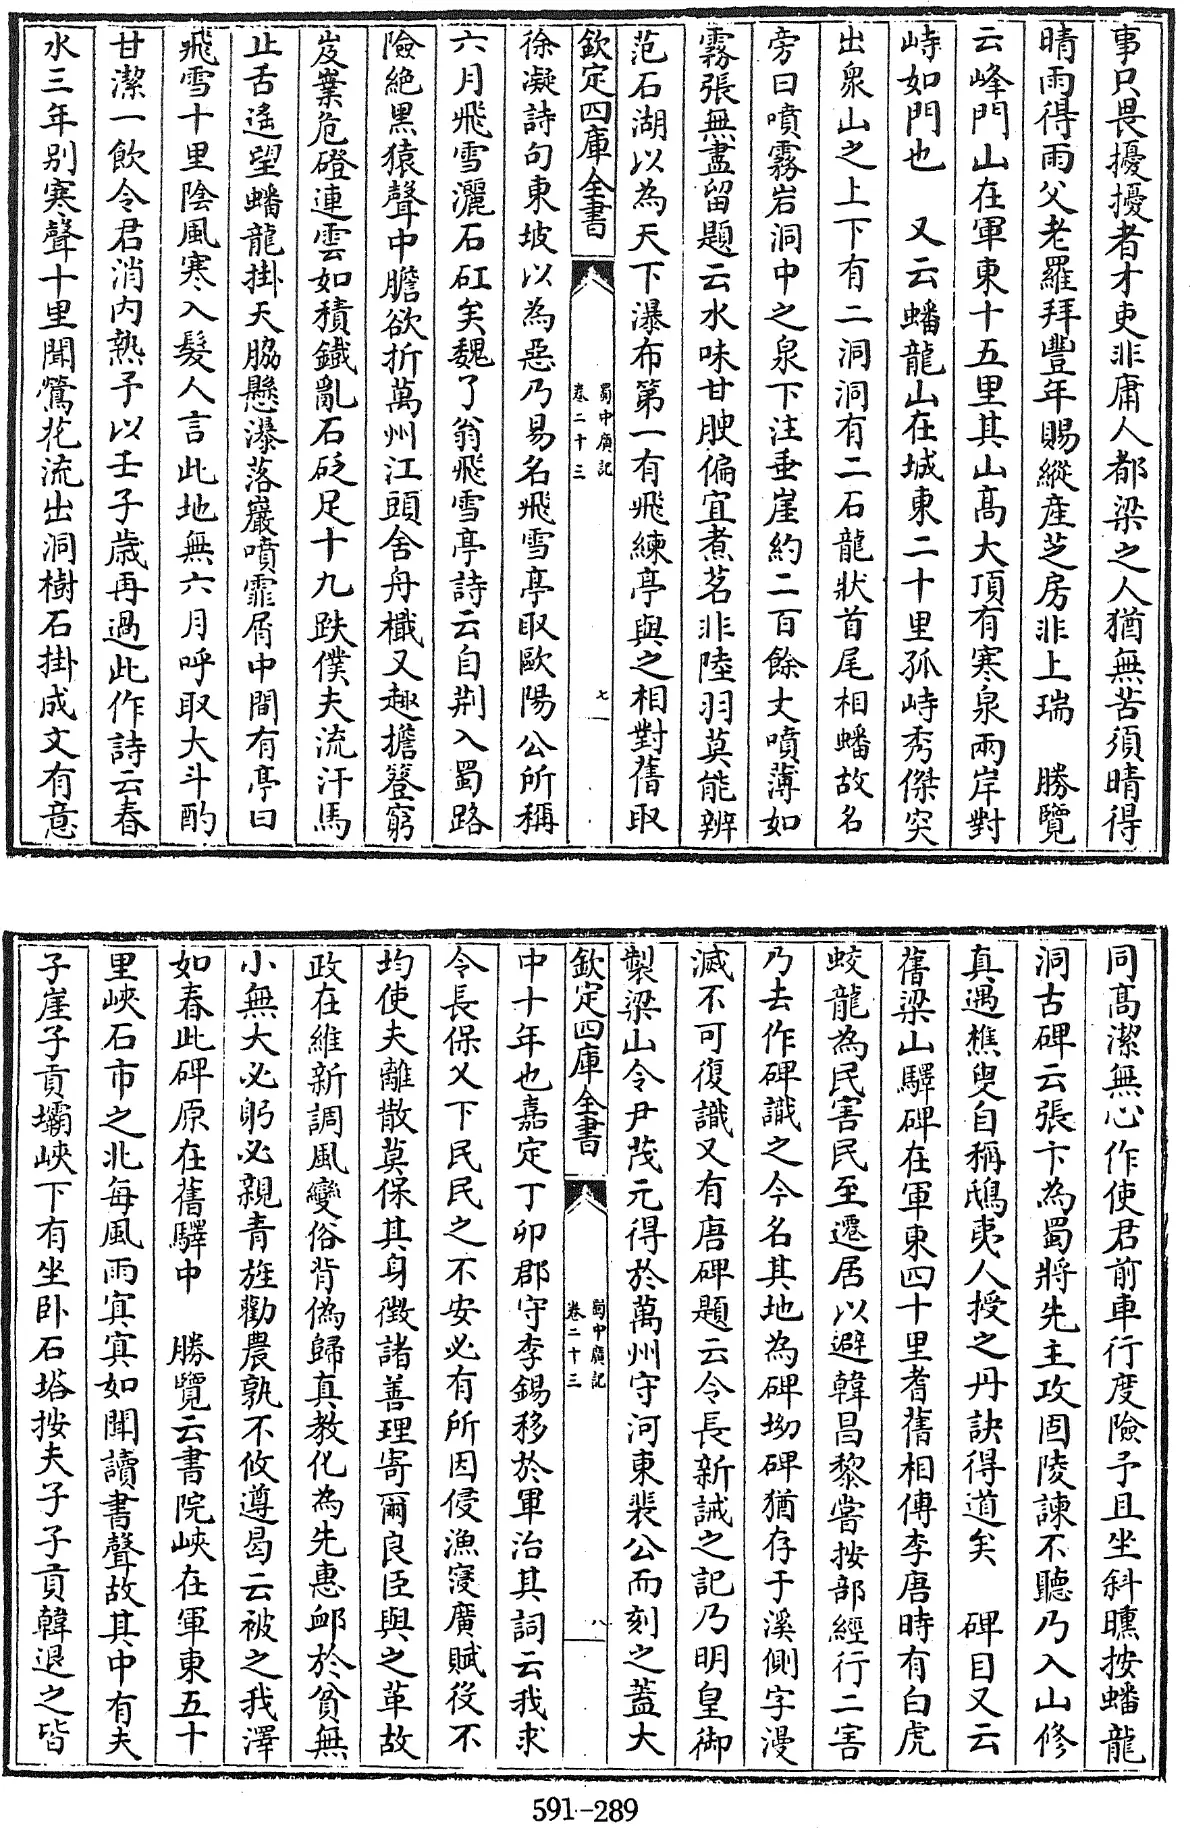 事只畏擾擾者才吏非庸人都梁之人猶無苦須晴得
晴雨得雨父老羅拜豐年賜縱産芝房非上瑞　勝覽
云峰門山在軍東十五里其山髙大頂有寒泉兩岸對
峙如門也　又云蟠龍山在城東二十里孤峙秀傑突
出衆山之上下有二洞洞有二石龍狀首尾相蟠故名
旁曰噴霧岩洞中之泉下注垂崖約二百餘丈噴薄如
霧張無盡留題云水味甘腴偏宜煮茗非陸羽莫能辨
范石湖以為天下瀑布第一有飛練亭與之相對舊取
欽定四庫全書
蜀中廣記
卷二十三
七
徐凝詩句東坡以為惡乃易名飛雪亭取歐陽公所稱
六月飛雪灑石矼矣魏了翁飛雪亭詩云自荆入蜀路
險絶黒猿聲中膽欲折萬州江頭舍舟檥又趣擔簦窮
岌嶪危磴連雲如積鐵亂石砭足十九跌僕夫流汗馬
止舌遙望蟠龍掛天脇懸瀑落巖噴霏屑中間有亭曰
飛雪十里陰風寒入髮人言此地無六月呼取大斗酌
甘潔一飲令君消内熱予以壬子歳再過此作詩云春
水三年别寒聲十里聞鶯花流出洞樹石掛成文有意
同髙潔無心作使君前車行度險予且坐斜曛按蟠龍
洞古碑云張卞為蜀將先主攻固陵諫不聽乃入山修
真遇樵叟自稱鴟夷人授之丹訣得道矣　碑目又云
舊梁山驛碑在軍東四十里耆舊相傳李唐時有白虎
蛟龍為民害民至遷居以避韓昌黎嘗按部經行二害
乃去作碑識之今名其地為碑坳碑猶存于溪側字漫
滅不可復識又有唐碑題云令長新誡之記乃明皇御
製梁山令尹茂元得於萬州守河東裴公而刻之蓋大
欽定四庫全書
蜀中廣記
卷二十三
八
中十年也嘉定丁卯郡守李錫移於軍治其詞云我求
令長保乂下民民之不安必有所因侵漁寖廣賦役不
均使夫離散莫保其身徴諸善理寄爾良臣與之革故
政在維新調風變俗背僞歸真教化為先惠䘏於貧無
小無大必躬必親青旌勸農孰不攸遵曷云被之我澤
如春此碑原在舊驛中　勝覽云書院峽在軍東五十
里峽石市之北每風雨㝠㝠如聞讀書聲故其中有夫
子崖子貢壩峽下有坐卧石塔按夫子子貢韓退之皆
591-289